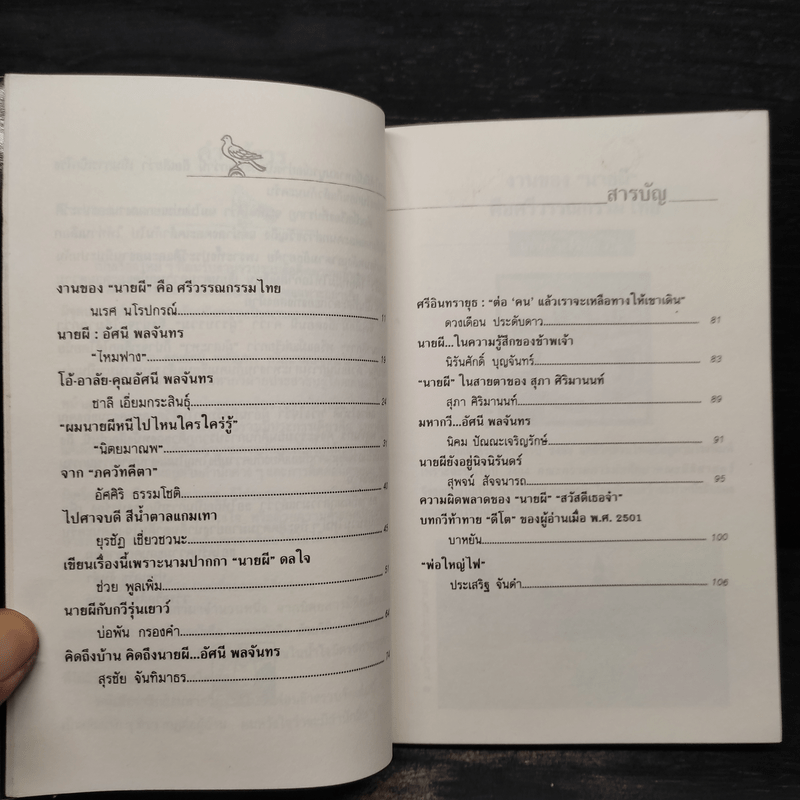 งานของ “นายผี” คือ ศรีวรรณกรรมไทย
นเรศ นโรปกรณ์ 11
นายผี : อัศนี พลจันทร
“ไหมฟาง”
โอ้-อาลัย-คุณอัศนี พลจันทร
ชาลี เอี่ยมกระสินธุ์ 24
“ผมนายผีหนีไปไหนใครใคร่รู้”
“นิตยมาณพ”
จาก “ภควัทคีตา”
อัศศิริ ธรรมโชติ
ไปศาจบดี สีน้ำตาลแกมเทา
ยุรชัฏ เชี่ยวชวนะ
เขียนเรื่องนี้เพราะนามปากกา “นายผี” ดลใจ
ช่วย พูลเพิ่ม
นายผีกับกวีรุ่นเยาว์
บ่อพัน กรองคำ 64
คิดถึงบ้าน คิดถึงนายผี...อัศนี พลจันทร
สุรชัย จันทิมาธร 74
สารบัญ
ศรีอินทรายุธ : “ต่อ ‘คน’ แล้วเราจะเหลือทางให้เขาเดิน”
ดวงเดือน ประดับดาว 81
นายผี...ในความรู้สึกของข้าพเจ้า
นิรันศักดิ์ บุญจันทร์ 83
“นายผี” ในสายตาของ สุภา ศิริมานนท์
สุภา ศิริมานนท์ 89
มหากวี...อัศนี พลจันทร
นิคม ปัณณะเจริญรักษ์ 91
นายผียังอยู่นิจนิรันดร์
สุพจน์ สัจจนารถ 95
ความผิดพลาดของ “นายผี” “สวัสดีเธอจ๋า”
บทกวีท้าทาย “ตีโต” ของผู้อ่านเมื่อ พ.ศ. 2501
บาหยัน 100
“พ่อใหญ่ไฟ”
ประเสริฐ จันดำ 106